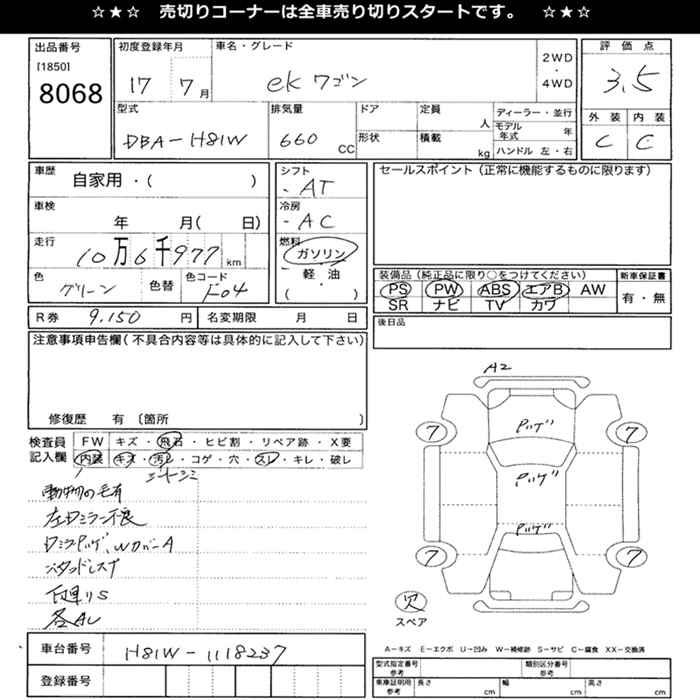 ☆★☆ 売切りコーナーは全車売り切りスタートです。 ☆★☆
出品番号
[1850]
8068
初度登録年月
17 7月
車名・グレード
ek ワゴン
2WD
・
4WD
評価点
3.5
型式
DBA-H81W
排気量
660 CC
ドア
形状
定員
人
積載
kg
ディーラー・並行
モデル年式 年
ハンドル 左・右
外装 内装
C C
車歴
自家用・( )
車検
年 月( 日)
走行
10万6千977 km
色
グリーン
色替
色コード
F04
シフト
・AT
冷房
・AC
燃料
ガソリン
・
軽・油
( )
セールスポイント(正常に機能するものに限ります)
装備品(純正品に限り○をつけてください)
PS PW ABS エアB AW
SR ナビ TV カワ
新車保証書
有・無
R券 9,150 円
名変期限 月 日
後日品
注意事項申告欄(不具合内容等は具体的に記入して下さい)
修復歴 有〔箇所 〕
検査員記入欄
FW キズ・飛石・ヒビ割・リペア跡・X要
内装 キズ・汚レ・コゲ・穴・スレ・キレ・破レ
シートシミ
動物の毛有
左Dミラー不良
Dミラーハゲ、WカバーA
下廻りS
各AU
車台番号
H81W-1118237
登録番号
A2
ハゲ
7 7
ハゲ
ハゲ
7 7
欠
スペア
A－キズ E－エクボ U－凹み W－補修跡 S－サビ C－腐食 XX－交換済
型式指定番号
参考
類別区分番号
参考
車庫証明用
参考
長さ cm
幅 cm
高さ cm